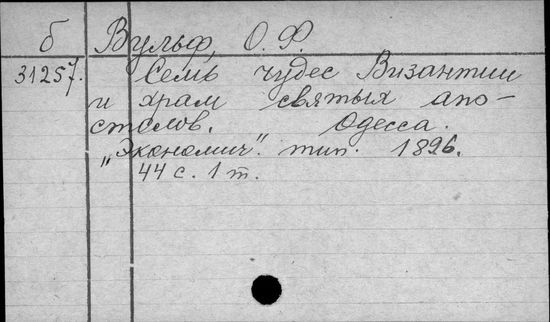 б Вульф, О. Ф.
31257. Семь чудес Византии
и храм святых апо-
столов. Одесса.
„Экономич." тип. 1896.
44 с. 1 т.